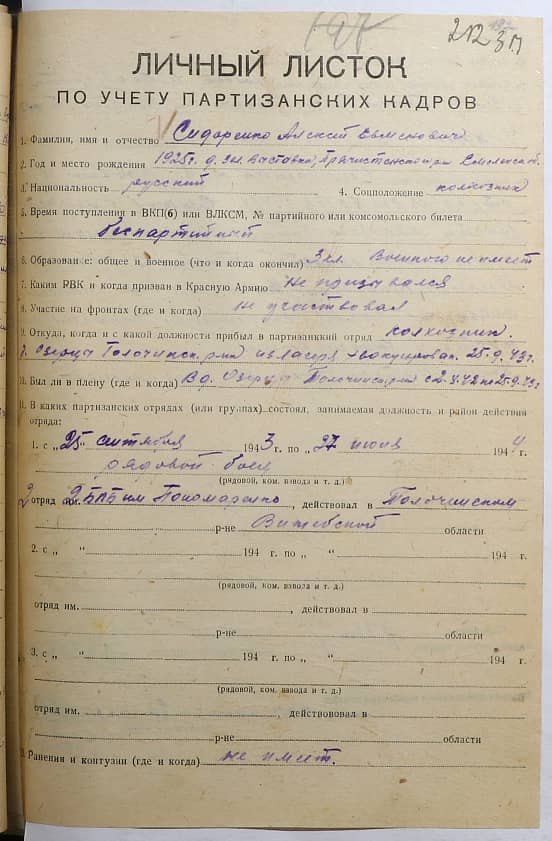 212 3п
ЛИЧНЫЙ ЛИСТОК
ПО УЧЕТУ ПАРТИЗАНСКИХ КАДРОВ
1. Фамилия, имя и отчество Сидоренко Алексей Евменович
2. Год и место рождения 1925г. д. Пречистенского р-н Смоленск. об.
3. Национальность русский 4. Соцположение колхозник
5. Время поступления в ВКП(б) или ВЛКСМ, № партийного или комсомольского билета
беспартийный
6. Образование: общее и военное (что и когда окончил) 3 кл. Военного не имеет
7. Каким РВК и когда призван в Красную Армию не призывался
8. Участие на фронтах (где и когда) не участвовал
9. Откуда, когда и с какой должности прибыл в партизанкий отряд колхозник.
д. Озерцы Толочинск. р-на из лагеря эвакуирован. 25.9.43г.
10. Был ли в плену (где и когда) В д. Озерцы Толочинск. р-на с 2.4.42 по 25.9.43г
11. В каких партизанских отрядах (или группах) состоял, занимаемая должность и район действия
отряда:
1. с „25" сентября 1943 г. по „27 июня 1944 г.
рядовой боец
(рядовой, ком. взвода и т. д.)
2 отряд им. 2 БПБ им Пономаренко, действовал в Толочинском
р-не Витебской области
2. с „ " 194 г. по „ " 194 г.
(рядовой, ком. взвода и т. д.)
отряд им. , действовал в
р-не области
3. с „ " 194 г. по „ " 194 г.
(рядовой, ком. взвода и т. д.)
отряд им. , действововал в
р-не области
Ранения и контузии (где и когда) не имеет.